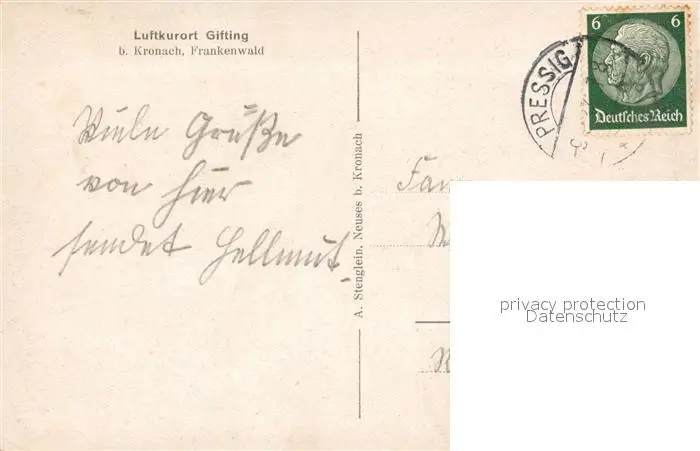 Luftkurort Gifting
b. Kronach, Frankenwald
Viele Grüße
von hier
sendet Hellmut.
A. Stenglein, Neuses b. Kronach
6 6
Deutsches Reich
PRESSIG
Fam
privacy protection
Datenschutz